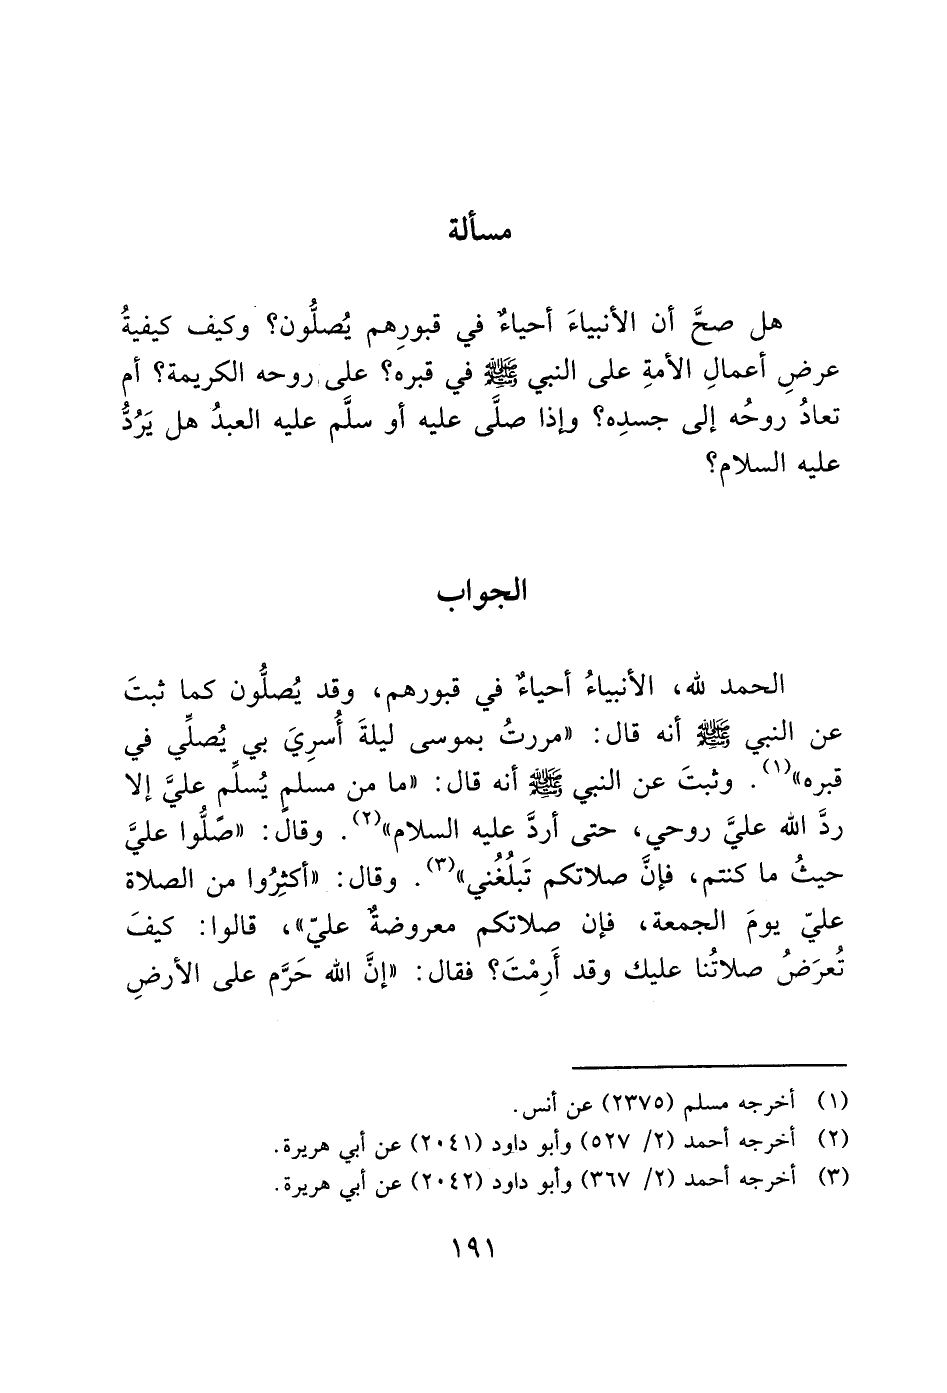 مسألة
هل صحَّ أن الأنبياءَ أحياءٌ في قبورِهم يُصلُّون؟ وكيف كيفيةُ
عرضِ أعمالِ الأمةِ على النبي ﷺ في قبره؟ على روحه الكريمة؟ أم
تعادُ روحُه إلى جسدِه؟ وإذا صلَّى عليه أو سلَّم عليه العبدُ هل يَرُدُّ
عليه السلام؟
الجواب
الحمد لله، الأنبياءُ أحياءٌ في قبورهم، وقد يُصلُّون كما ثبتَ
عن النبي ﷺ أنه قال: «مررتُ بموسى ليلةَ أُسرِيَ بي يُصلِّي في
قبره»(١). وثبتَ عن النبي ﷺ أنه قال: «ما من مسلم يُسلِّم عليَّ إلا
ردَّ الله عليَّ روحي، حتى أردَّ عليه السلام»(٢). وقال: «صلُّوا عليَّ
حيثُ ما كنتم، فإنَّ صلاتكم تَبلُغُني»(٣). وقال: «أكثِرُوا من الصلاة
عليّ يومَ الجمعة، فإن صلاتكم معروضةٌ عليّ»، قالوا: كيفَ
تُعرَضُ صلاتُنا عليك وقد أَرِمْتَ؟ فقال: «إنَّ الله حَرَّم على الأرضِ
(١) أخرجه مسلم (٢٣٧٥) عن أنس.
(٢) أخرجه أحمد (٢/ ٥٢٧) وأبو داود (٢٠٤١) عن أبي هريرة.
(٣) أخرجه أحمد (٢/ ٣٦٧) وأبو داود (٢٠٤٢) عن أبي هريرة.
١٩١